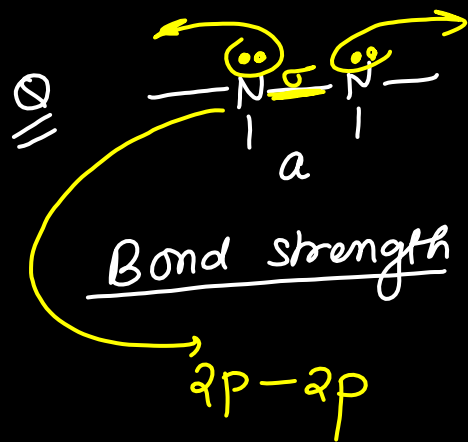 Q
— N̈ σ N̈ —
a
Bond strength
2p – 2p